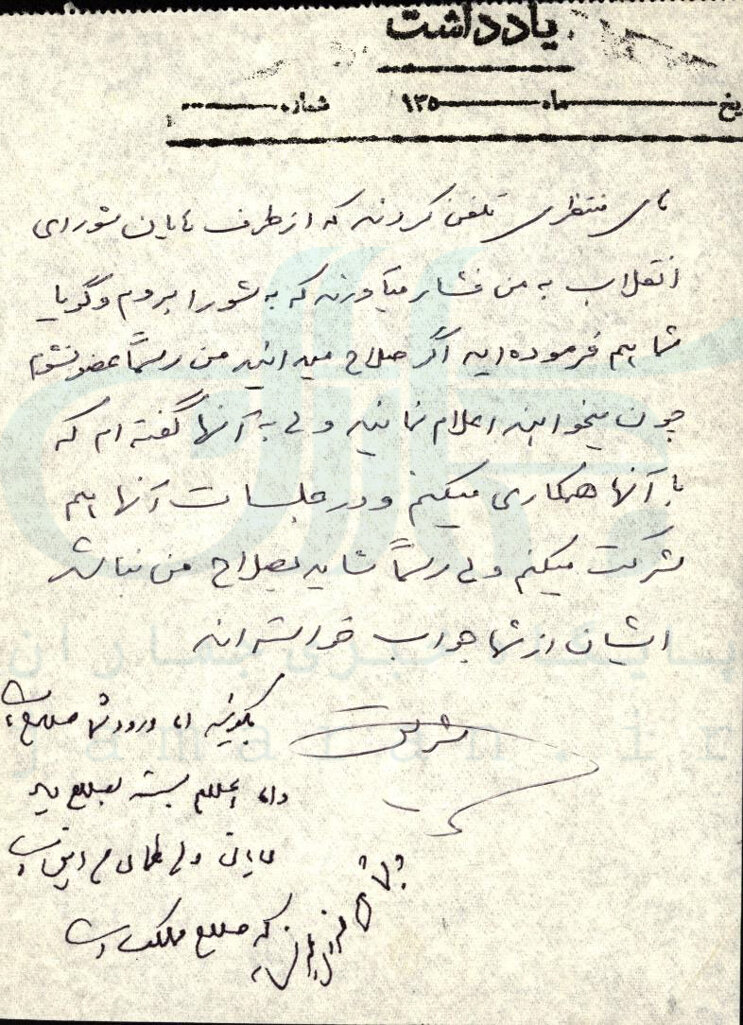 یادداشت
یخ ماه ۱۳۵ شماره
آقای منتظری تلفن کردند که از طرف آقایان شورای
انقلاب به من فشار میآورند که به شورا بروم و گویا
شما هم فرموده‌اید اگر صلاح میدانید من رسماً عضو نشوم
چون میخواهند اعلام نمایند ولی به آنها گفته‌ام که
با آنها همکاری میکنم و در جلسات آنها هم
شرکت میکنم ولی رسماً شاید بصلاح من نباشد
ایشان از شما جواب خواسته‌اند
بگوئید ورود شما صلاح است
اعلام بسته بصلاح دید
آقایان ولی
که صلاح مملکت است
پایگاه خبری جماران
jamaran.ir